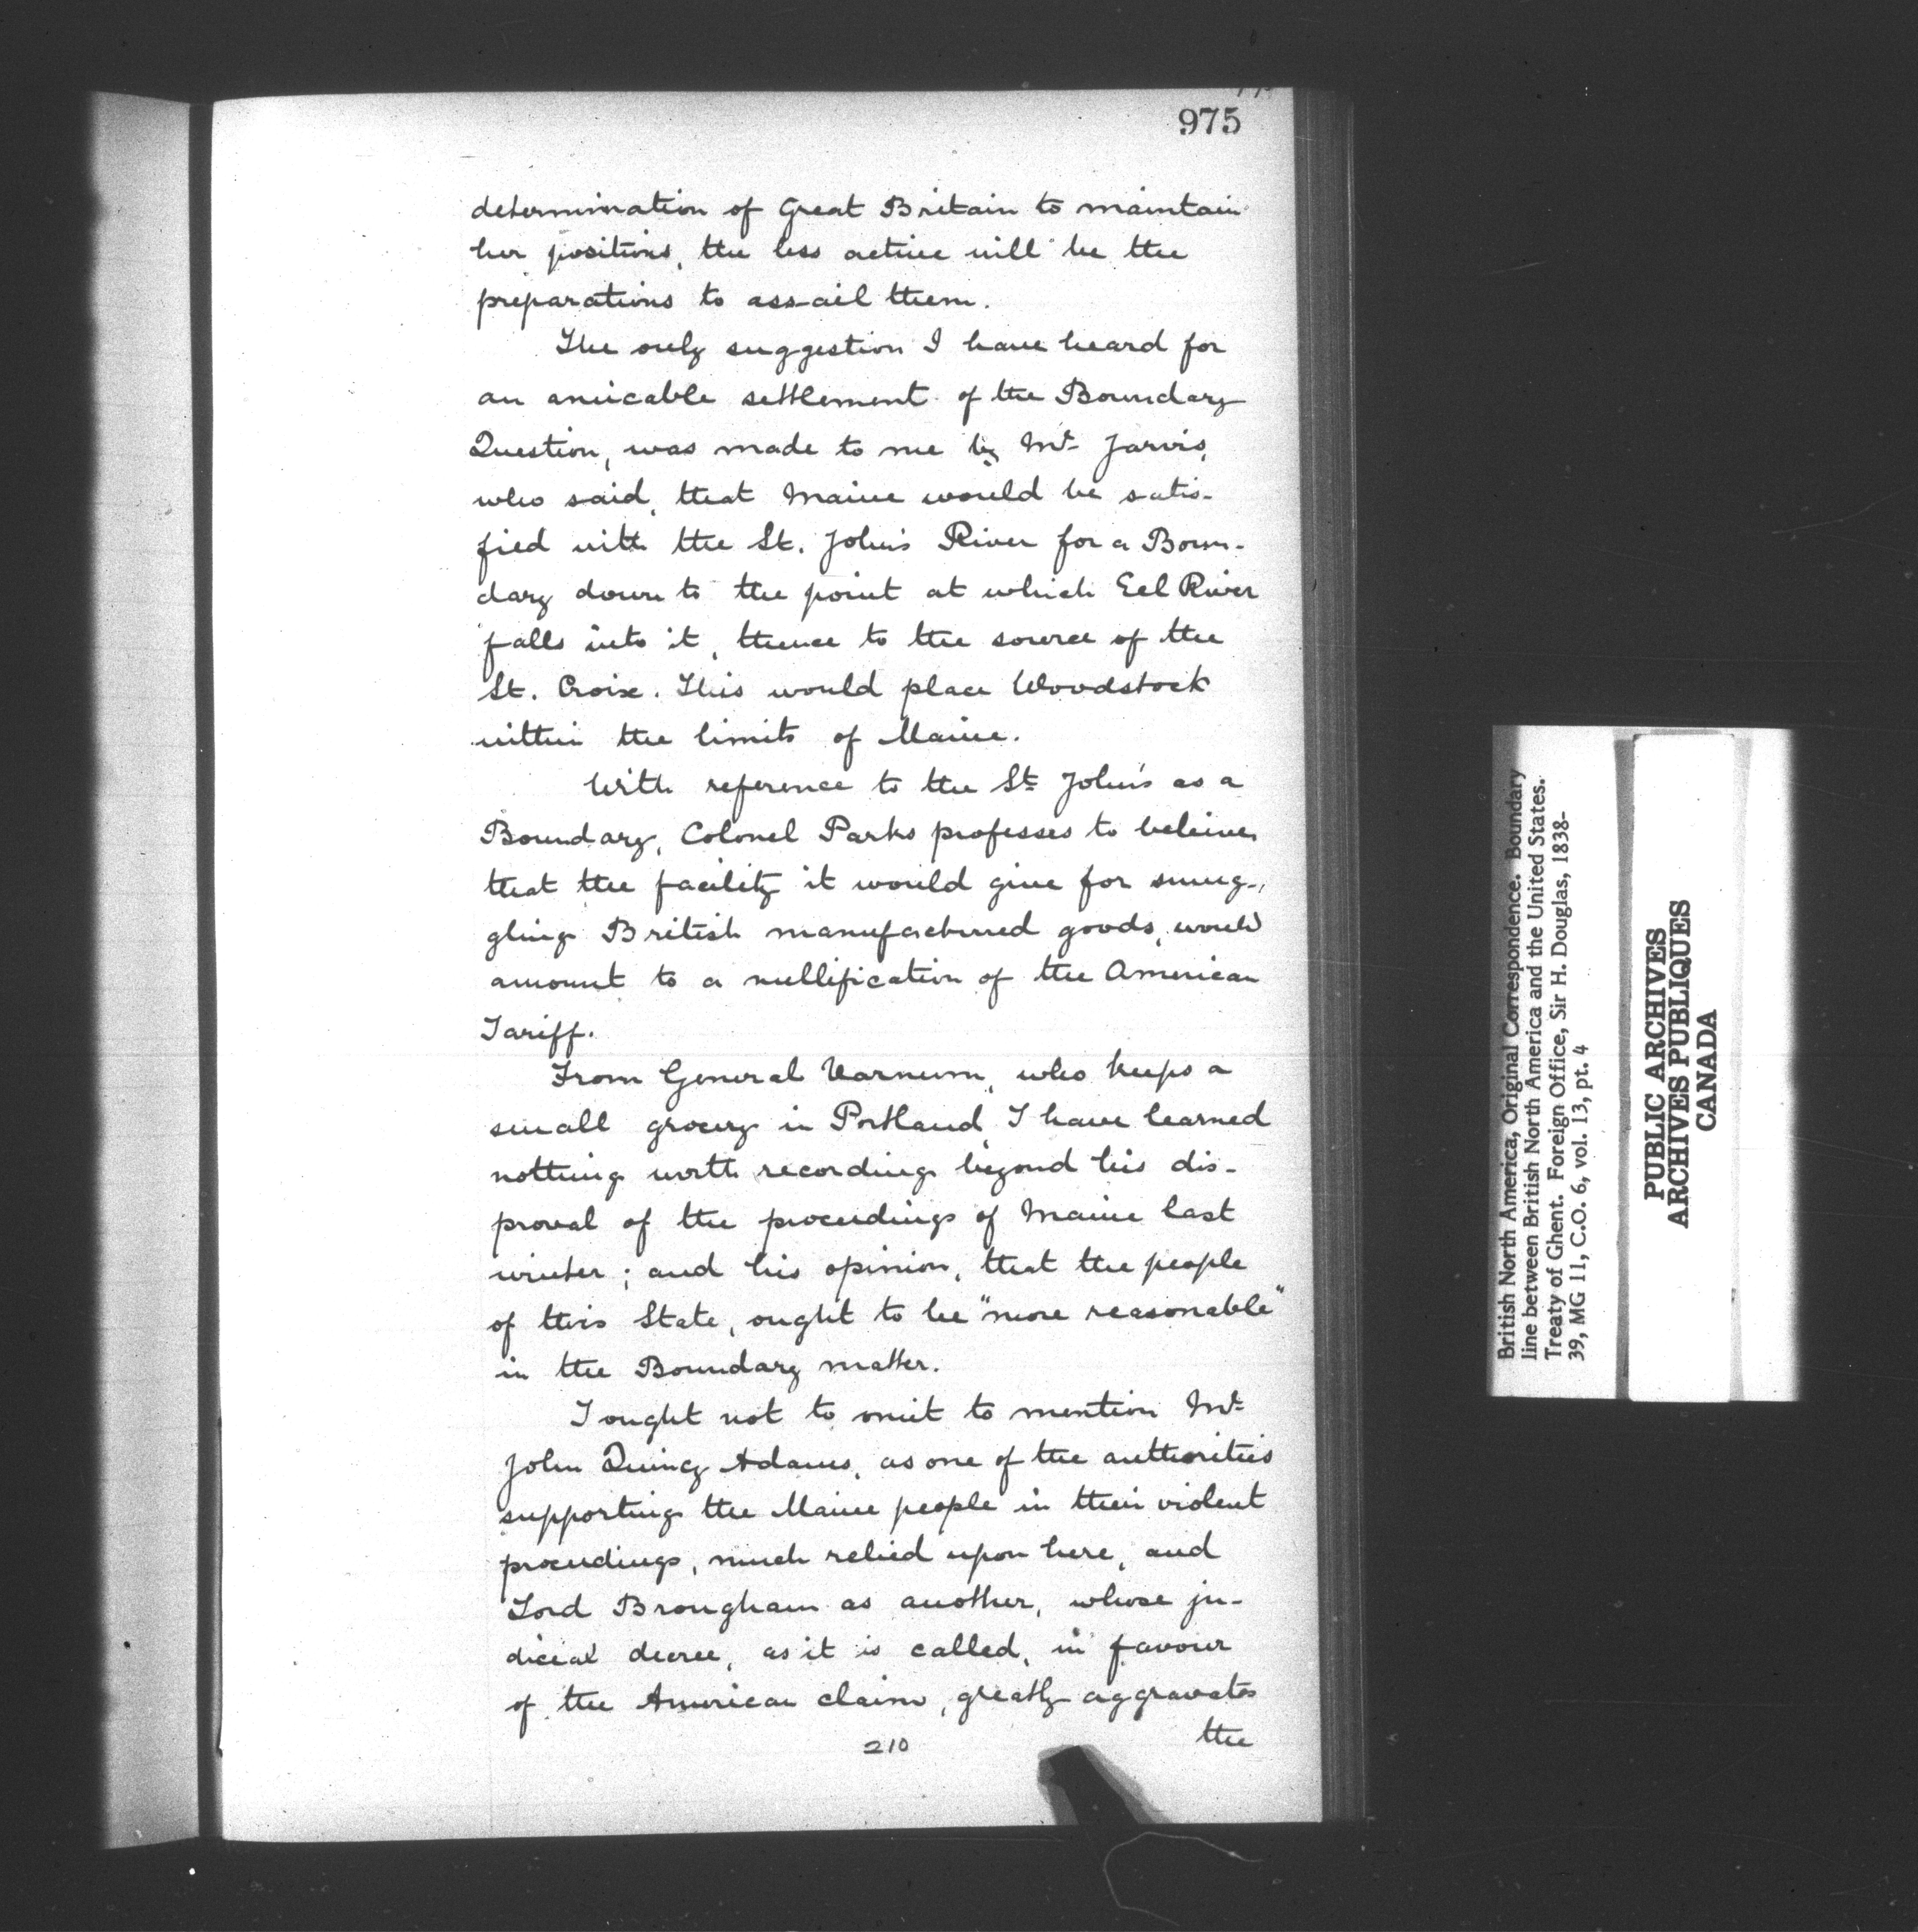 975
determination of Great Britain to maintain
her positions, the less active will be the
preparations to assail them.
The only suggestion I have heard for
an amicable settlement of the Boundary
Question, was made to me by Mr Jarvis,
who said, that Maine would be satis-
fied with the St. John's River for a Boun-
dary down to the point at which Eel River
falls into it, thence to the source of the
St. Croix. This would place Woodstock
within the limits of Maine.
With reference to the St John's as a
Boundary, Colonel Parks professes to beleive,
that the facility it would give for smug-
gling British manufactured goods, would
amount to a nullification of the American
Tariff.
From General Varnum, who keeps a
small grocery in Portland, I have learned
nothing worth recording beyond his dis-
proval of the proceedings of Maine last
winter; and his opinion, that the people
of this State, ought to be "more reasonable"
in the Boundary matter.
I ought not to omit to mention Mr
John Quincy Adams, as one of the authorities
supporting the Maine people in their violent
proceedings, much relied upon here, and
Lord Brougham as another, whose ju-
dicial decree, as it is called, in favour
of the American claim, greatly aggravates
the
210
British North America, Original Correspondence. Boundary
line between British North America and the United States.
Treaty of Ghent. Foreign Office, Sir H. Douglas, 1838-
39, MG 11, C.O. 6, vol. 13, pt. 4
PUBLIC ARCHIVES
ARCHIVES PUBLIQUES
CANADA